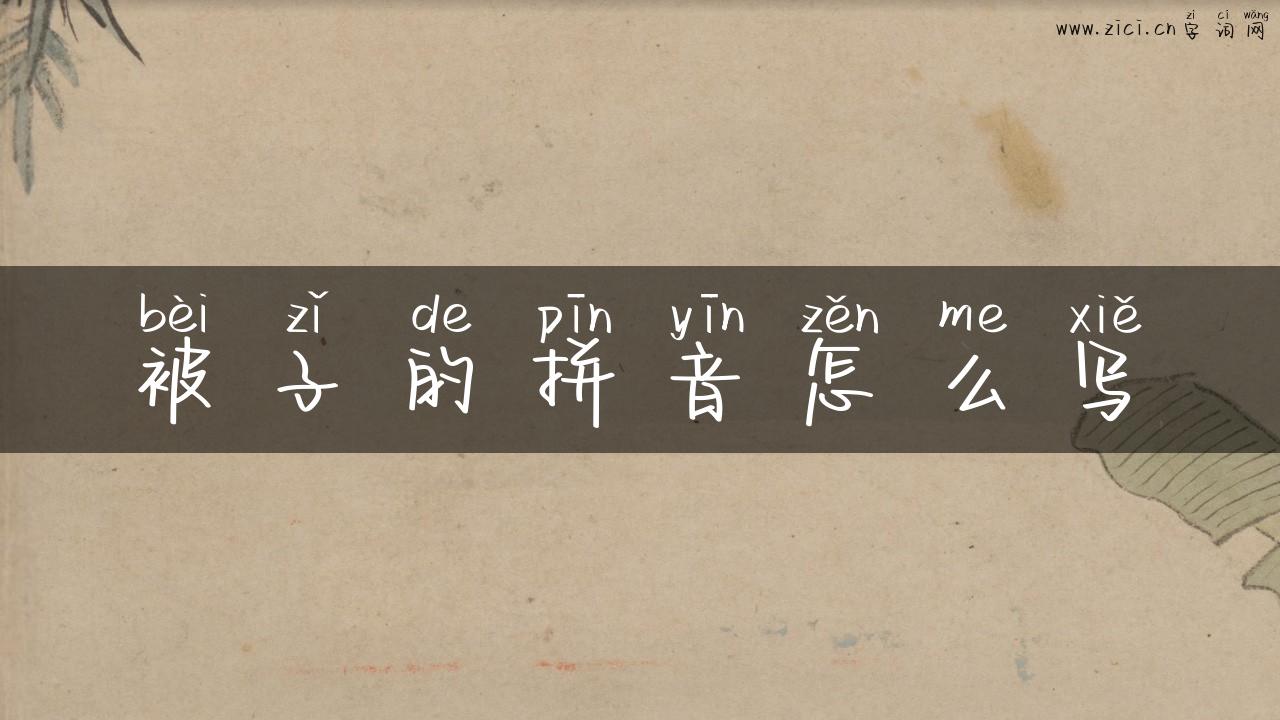 zì cí wǎng
www.zici.cn 字 词 网
bèi zǐ de pīn yīn zěn me xiě
被 子 的 拼 音 怎 么 写